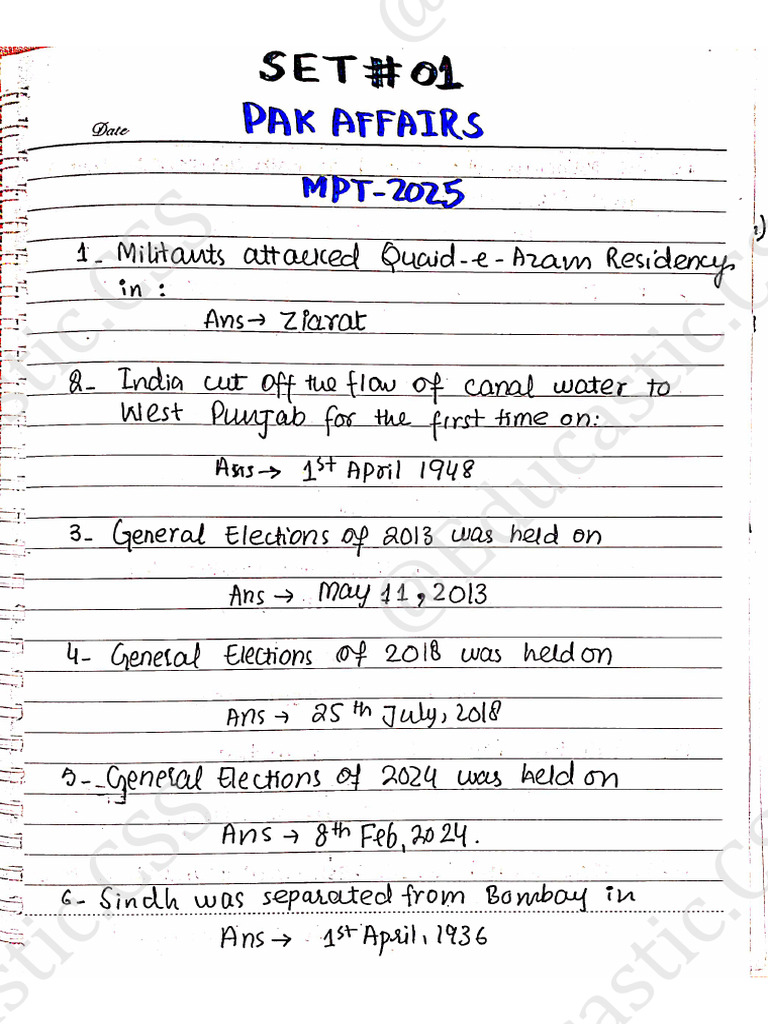 SET #01
Date
PAK AFFAIRS
MPT-2025
1- Militants attacked Quaid-e-Azam Residency
in :
Ans → Ziarat
2- India cut off the flow of canal water to
West Punjab for the first time on:
Ans → 1st April 1948
3- General Elections of 2013 was held on
Ans → May 11, 2013
4- General Elections of 2018 was held on
Ans → 25th July, 2018
5- General Elections of 2024 was held on
Ans → 8th Feb, 2024.
6- Sindh was separated from Bombay in
Ans → 1st April, 1936
@Educastic.CSS